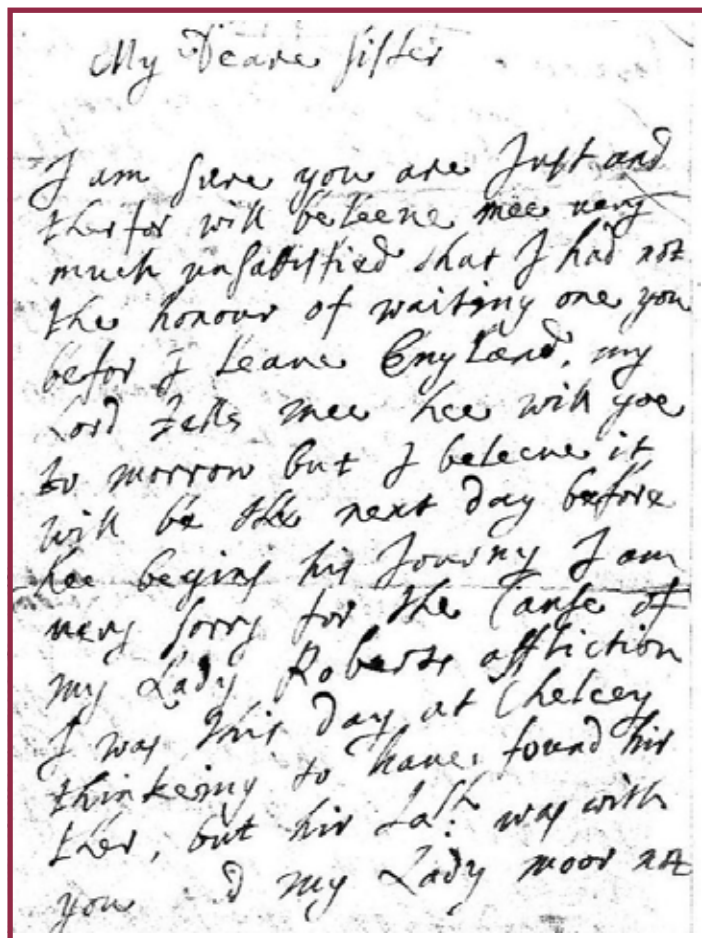 My Deare sister
I am sure you are Just and
therfor will beleeue mee uery
much unsattisfied that I had not
the honour of waiting one you
befor I leaue England, my
Lord tells mee hee will goe
to morrow but I beleeue it
will be the next day before
hee begins his Journy I am
uery sorry for the Cause of
my Lady Roberts affliction
I was this day at Chelcey
thinkeing to haue found hir
ther, but hir Lasp: was with
you my Lady moor not